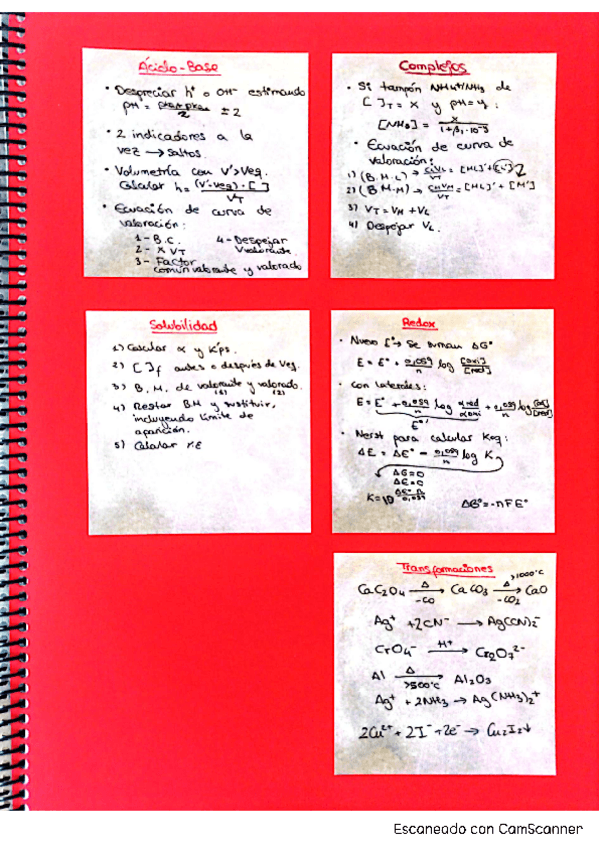 Ácido-Base
• Despreciar h° o OH⁻ estimando
pH = (pka+pka)/2 ± 2
• 2 indicadores a la
vez → saltos.
• Volumetría con V'>Veq.
Calcular h = (V'-Veq)·[ ]/VT
• Ecuación de curva de
valoración:
1- B.C.
2- x VT
3- Factor
común valorante y valorado
4- Despejar
Vvalorante
Complejos
• Si tampón NH4⁺/NH3 de
[ ]T = x y pH = y:
[NH3] = x/(1+β1·10⁻ʸ)
• Ecuación de curva de
valoración:
1) (B.M.L) → CLVL/VT = [ML]' + [L']
2) (B.M.M) → CMVM/VT = [ML]' + [M']
3) VT = VM + VL
4) Despejar VL.
Solubilidad
1) Calcular α y K'ps.
2) [ ]f antes o después de Veq.
3) B.M. de valorante y valorado.
(1) (2)
4) Restar BM y sustituir,
incluyendo límite de
aparición.
5) Calcular
Redox
• Nuevo E° → Se suman ΔG°
E = E° + 0,059/n log [oxi]/[red]
• Con laterales:
E = E° + 0,059/n log αred/αoxi + 0,059/n log [ox]/[red]
E°'
• Nerst para calcular Keq:
ΔE = ΔE° - 0,059/n log K
ΔG=0
ΔE=0
K=10^(ΔE°·n/0,059)
ΔG°=-nFE°
Transformaciones
CaC2O4 —Δ/-CO→ CaCO3 —Δ >1000°C/-CO2→ CaO
Ag⁺ + 2CN⁻ → Ag(CN)2⁻
CrO4⁻ —H⁺→ Cr2O7²⁻
Al —Δ/>500°C→ Al2O3
Ag⁺ + 2NH3 → Ag(NH3)2⁺
2Cu²⁺ + 2I⁻ + 2e⁻ → Cu2I2↓
Escaneado con CamScanner